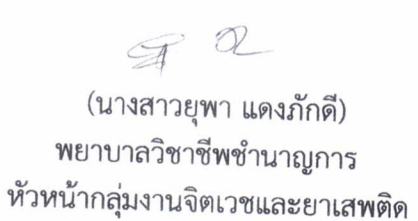 (นางสาวยุพา แดงภักดี)
พยาบาลวิชาชีพชำนาญการ
หัวหน้ากลุ่มงานจิตเวชและยาเสพติด